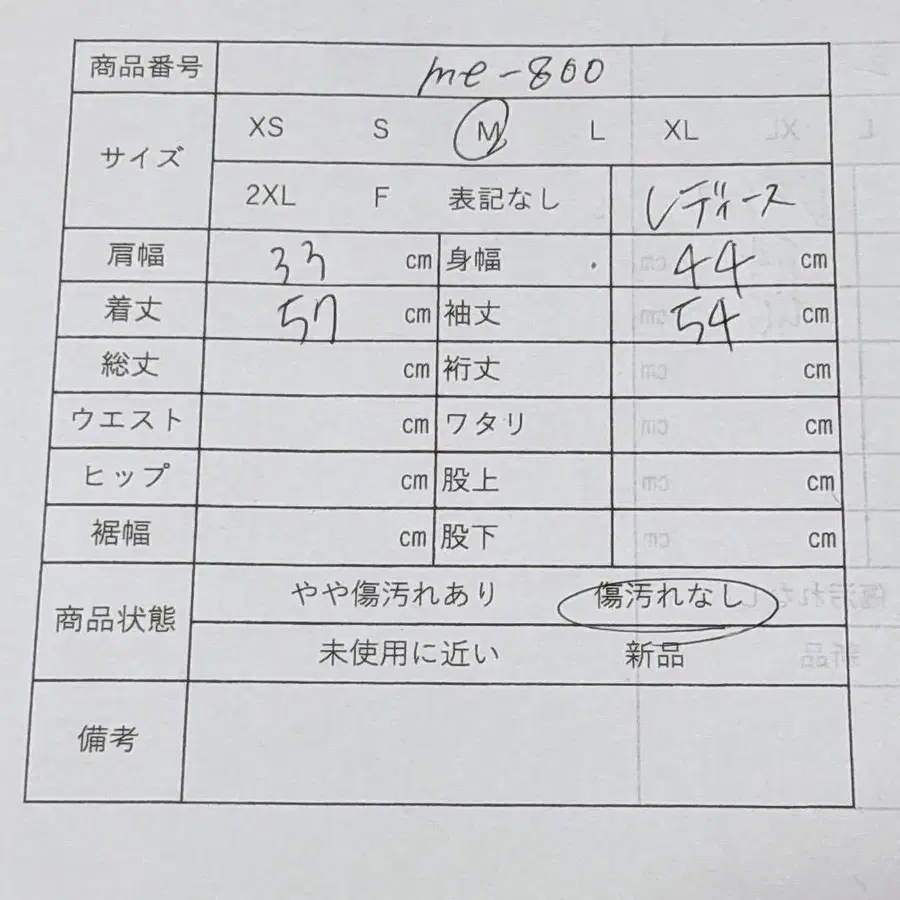 商品番号 me-800
サイズ XS S M L XL
2XL F 表記なし レディース
肩幅 33 cm 身幅 44 cm
着丈 57 cm 袖丈 54 cm
総丈 cm 裄丈 cm
ウエスト cm ワタリ cm
ヒップ cm 股上 cm
裾幅 cm 股下 cm
商品状態 やや傷汚れあり 傷汚れなし
未使用に近い 新品
備考